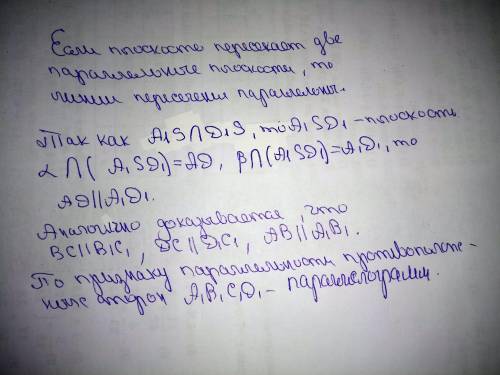 Если плоскость пересекает две
параллельные плоскости, то
линии пересечения параллельны.
Так как A₁S∩D₁S, то A₁SD₁ – плоскость
α∩(A₁SD₁)=AD, β∩(A₁SD₁)=A₁D₁, то
AD||A₁D₁.
Аналогично доказывается, что
BC||B₁C₁, DC||D₁C₁, AB||A₁B₁.
По признаку параллельности противополож-
ных сторон A₁B₁C₁D₁ – параллелограмм.